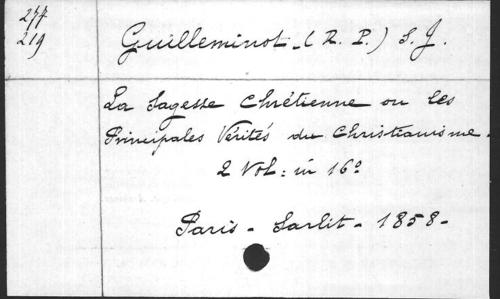 277
219
Guilleminot - (R. P.) S. J.
La Sagesse Chrétienne ou les
Principales Vérités du Christianisme.
2 Vol: in 16º
Paris - Sarlit - 1858 -